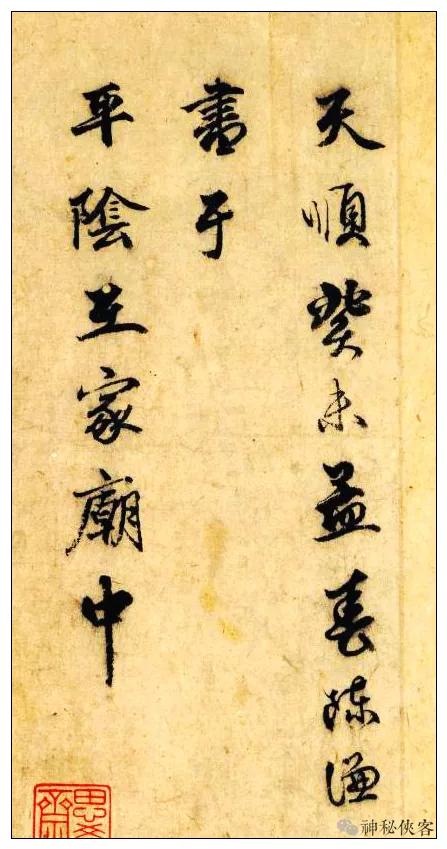 天順癸未孟春陳謙
書于
平陰王家廟中
神秘俠客